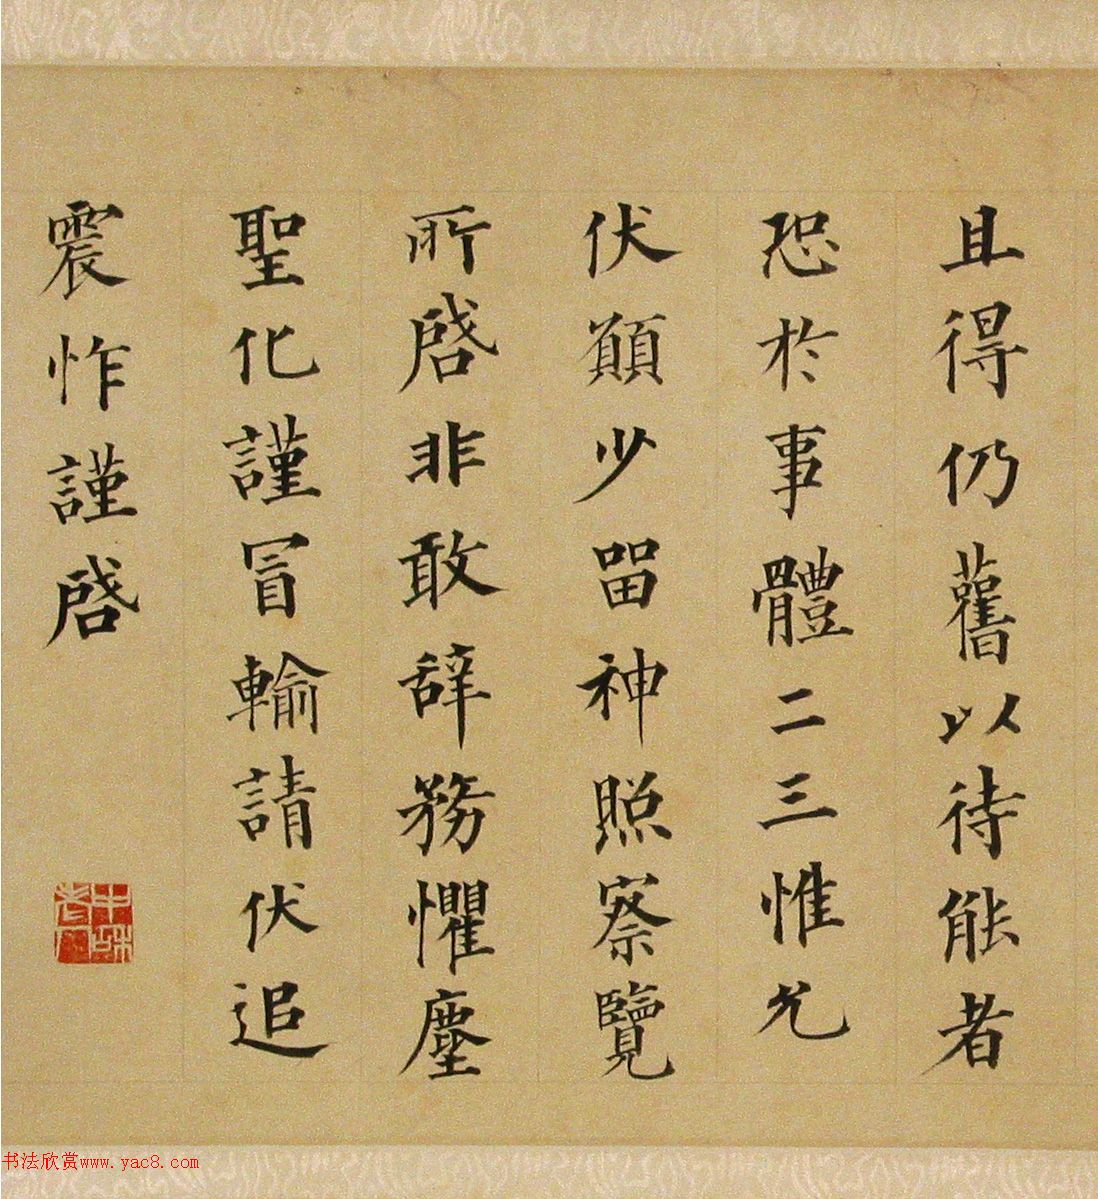 且得仍舊以待能者
恐於事體二三惟允
伏願少留神照察覽
所啓非敢辞務懼塵
聖化謹冒輸請伏追
震怍謹啓
书法欣赏www.yac8.com